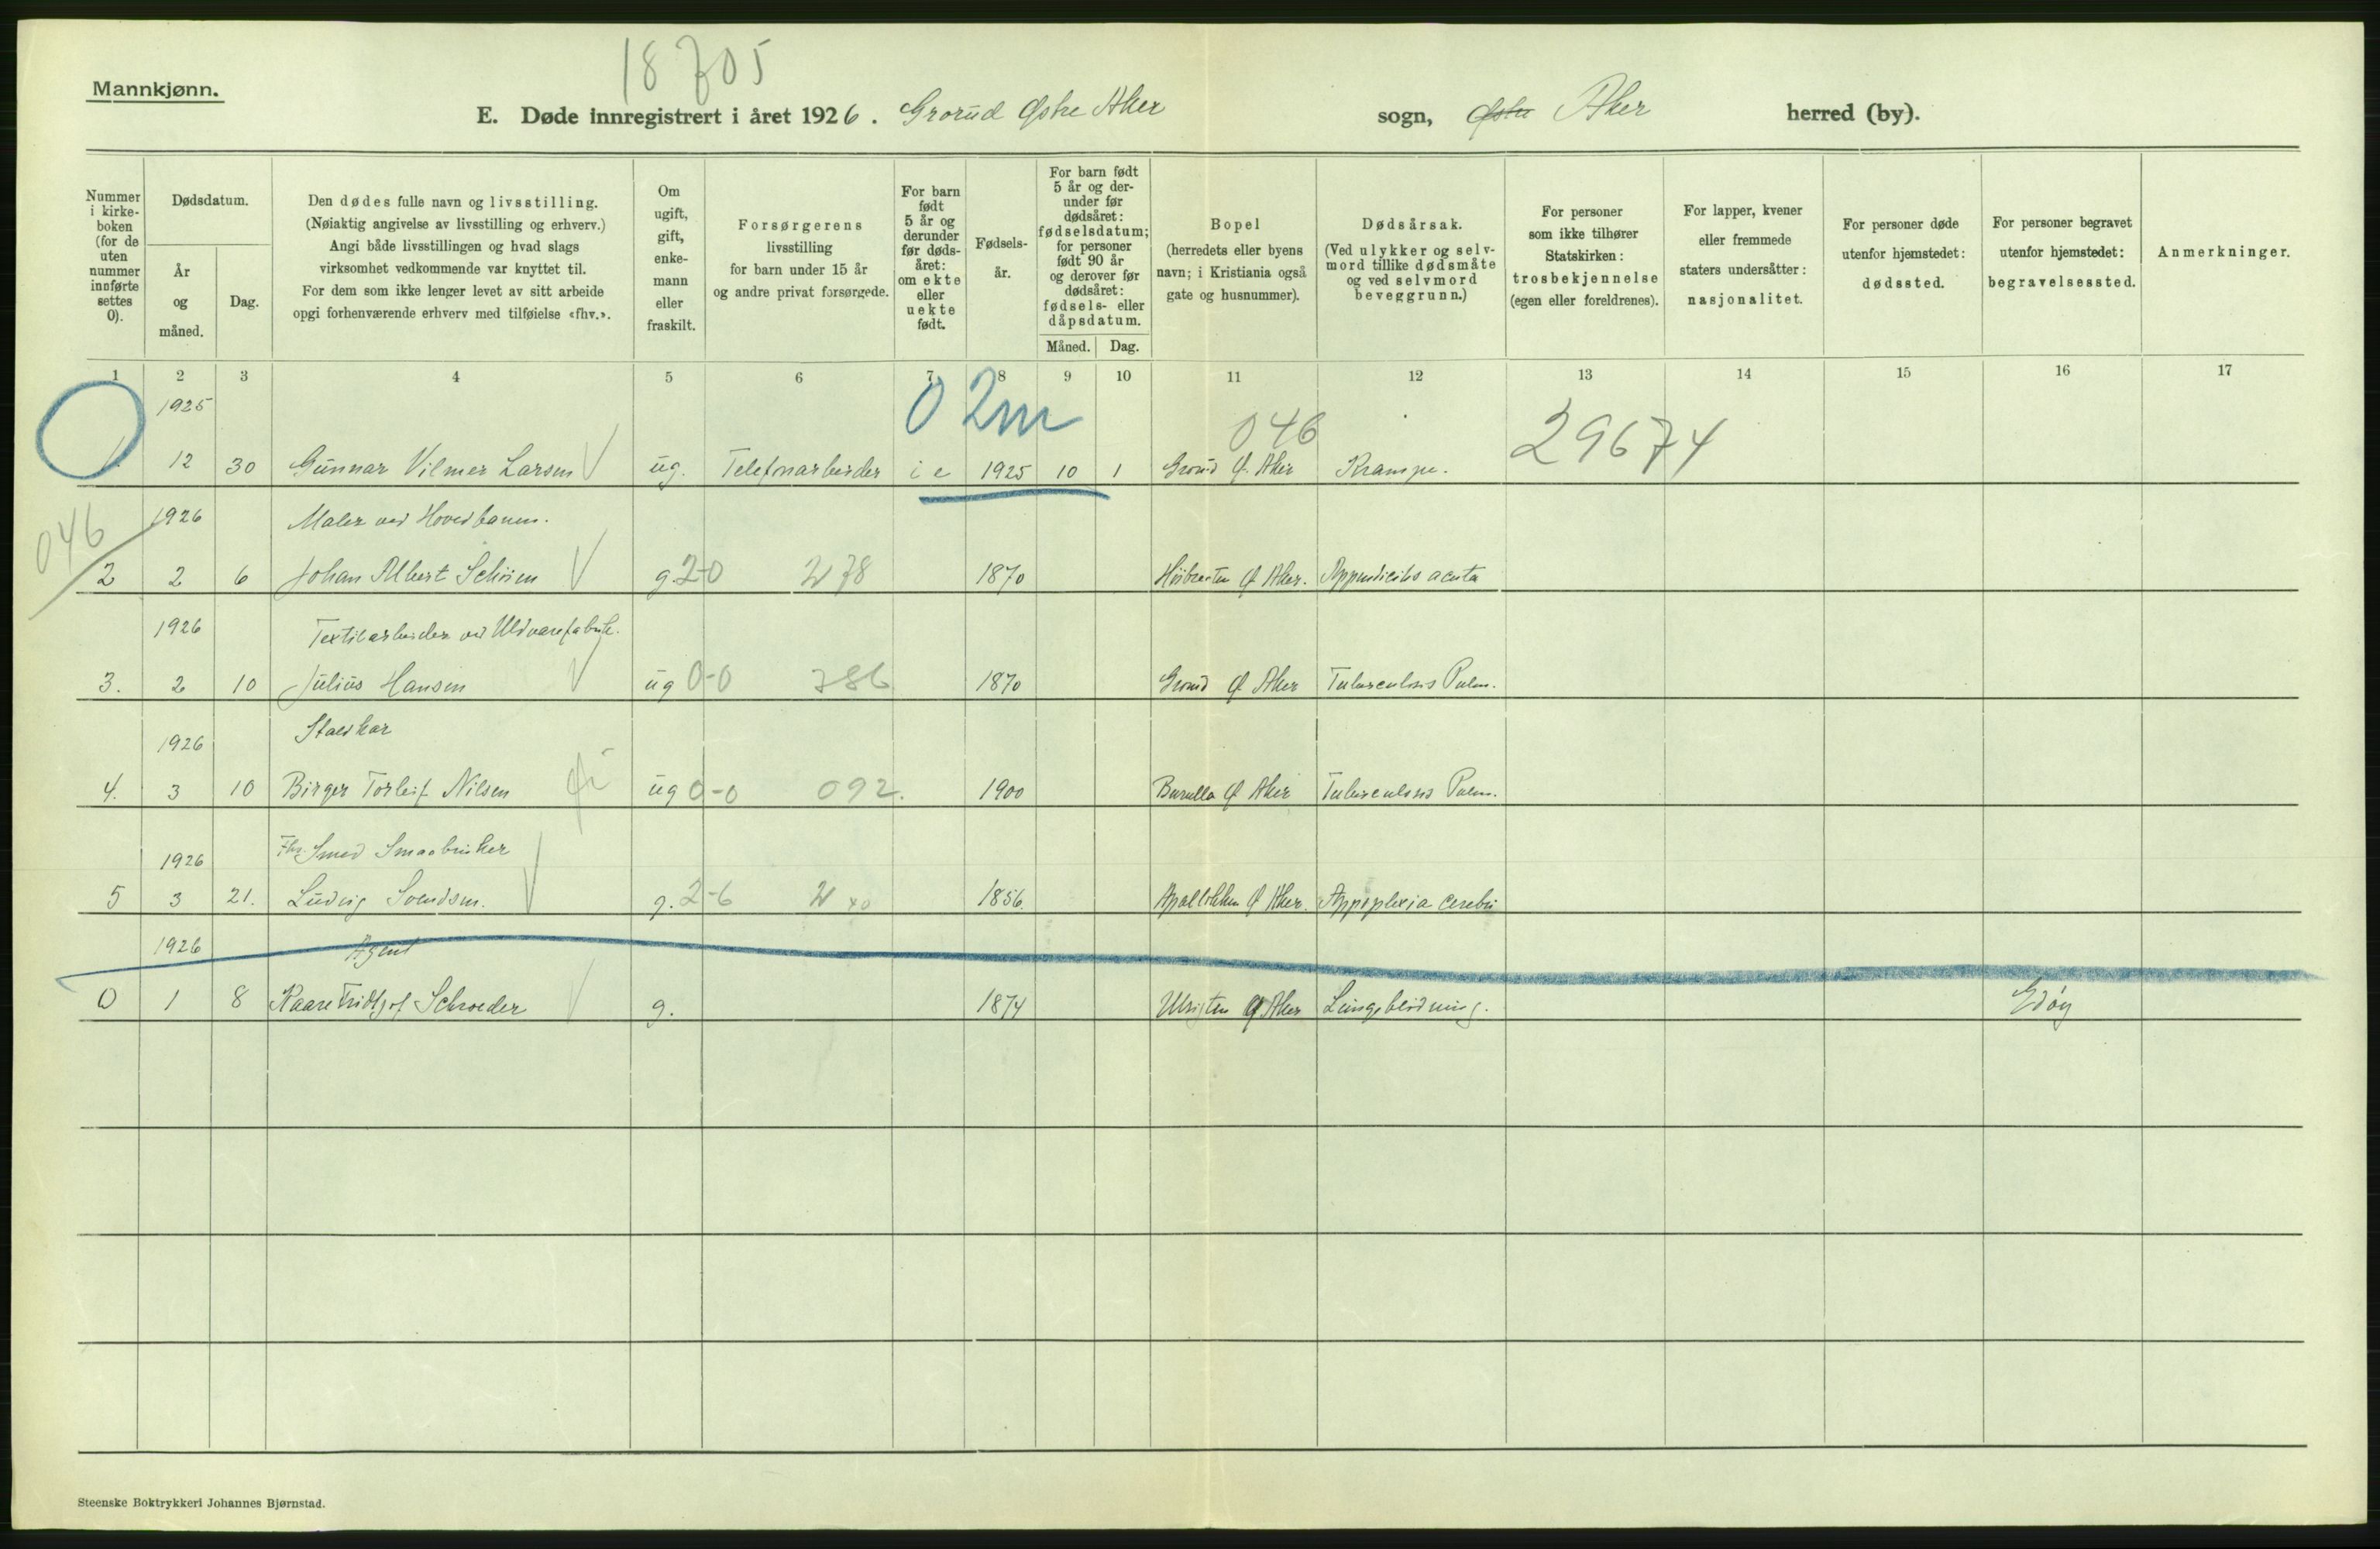 18705
Mannkjønn.
E. Døde innregistrert i året 1926. Grorud Østre Aker sogn, Østre Aker herred (by).
Nummer i kirke-boken (for de uten nummer innførte settes 0).
Dødsdatum.
År og måned.
Dag.
Den dødes fulle navn og livsstilling.
(Nøiaktig angivelse av livsstilling og erhverv.)
Angi både livsstillingen og hvad slags
virksomhet vedkommende var knyttet til.
For dem som ikke lenger levet av sitt arbeide
opgi forhenværende erhverv med tilføielse «fhv.».
Om ugift, gift, enke-mann eller fraskilt.
Forsørgerens
livsstilling
for barn under 15 år
og andre privat forsørgede.
For barn født 5 år og derunder før døds-året: om ekte eller uekte født.
Fødsels-år.
For barn født 5 år og der-under før dødsåret: fødselsdatum; for personer født 90 år og derover før dødsåret: fødsels- eller dåpsdatum.
Måned. Dag.
Bopel
(herredets eller byens
navn; i Kristiania også
gate og husnummer).
Dødsårsak.
(Ved ulykker og selv-
mord tillike dødsmåte
og ved selvmord
beveggrunn.)
For personer
som ikke tilhører
Statskirken:
trosbekjennelse
(egen eller foreldrenes).
For lapper, kvener
eller fremmede
staters undersåtter:
nasjonalitet.
For personer døde
utenfor hjemstedet:
dødssted.
For personer begravet
utenfor hjemstedet:
begravelsessted.
Anmerkninger.
1 2 3 4 5 6 7 8 9 10 11 12 13 14 15 16 17
1925 0 2m 046 29674
1. 12 30 Gunnar Vilmer Larsen ug. Telefonarbeider i e 1925 10 1 Grorud Ø. Aker Krampe.
046 1926 Maler ved Hovedbanen.
2 2 6 Johan Albert g. 2-0 78 1870 Ø Aker. Appendicitis acuta
1926 Textilarbeider ved Uldvarefabrik.
3. 2 10 Julius Hansen ug 0-0 786 1870 Grorud Ø Aker Tuberculosis Pulm.
1926 Staldkar
4. 3 10 Birger Torleif Nilsen ug 0-0 092. 1900 Ø Aker Tuberculosis Pulm.
1926 Fhv. Smed Smaabruker
5 3 21. Ludvig Svendsen. g. 2-6 1856 Apalløkken Ø Aker. Appoplexia cerebri
1926 Agent
0 1 8 Kaare Fridtjof Schroeder g. 1874 Ø Aker Lungeblødning. Edøy
Steenske Boktrykkeri Johannes Bjørnstad.